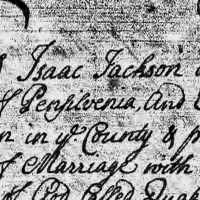 Isaac Jackson
of Penſilvenia, And
in ye County & p
of Marriage with
of God Called Quak